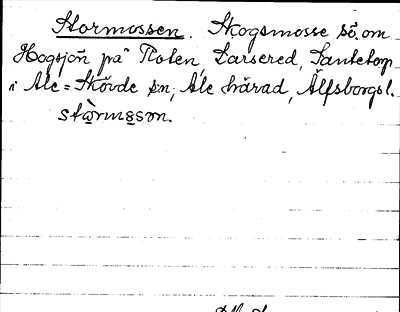 Stormossen. Skogsmosse sö. om
Hogsjön på Nolen, Larsered, Tantetorp
i Ale=Skövde sn, Ale härad, Älfsborgs l.